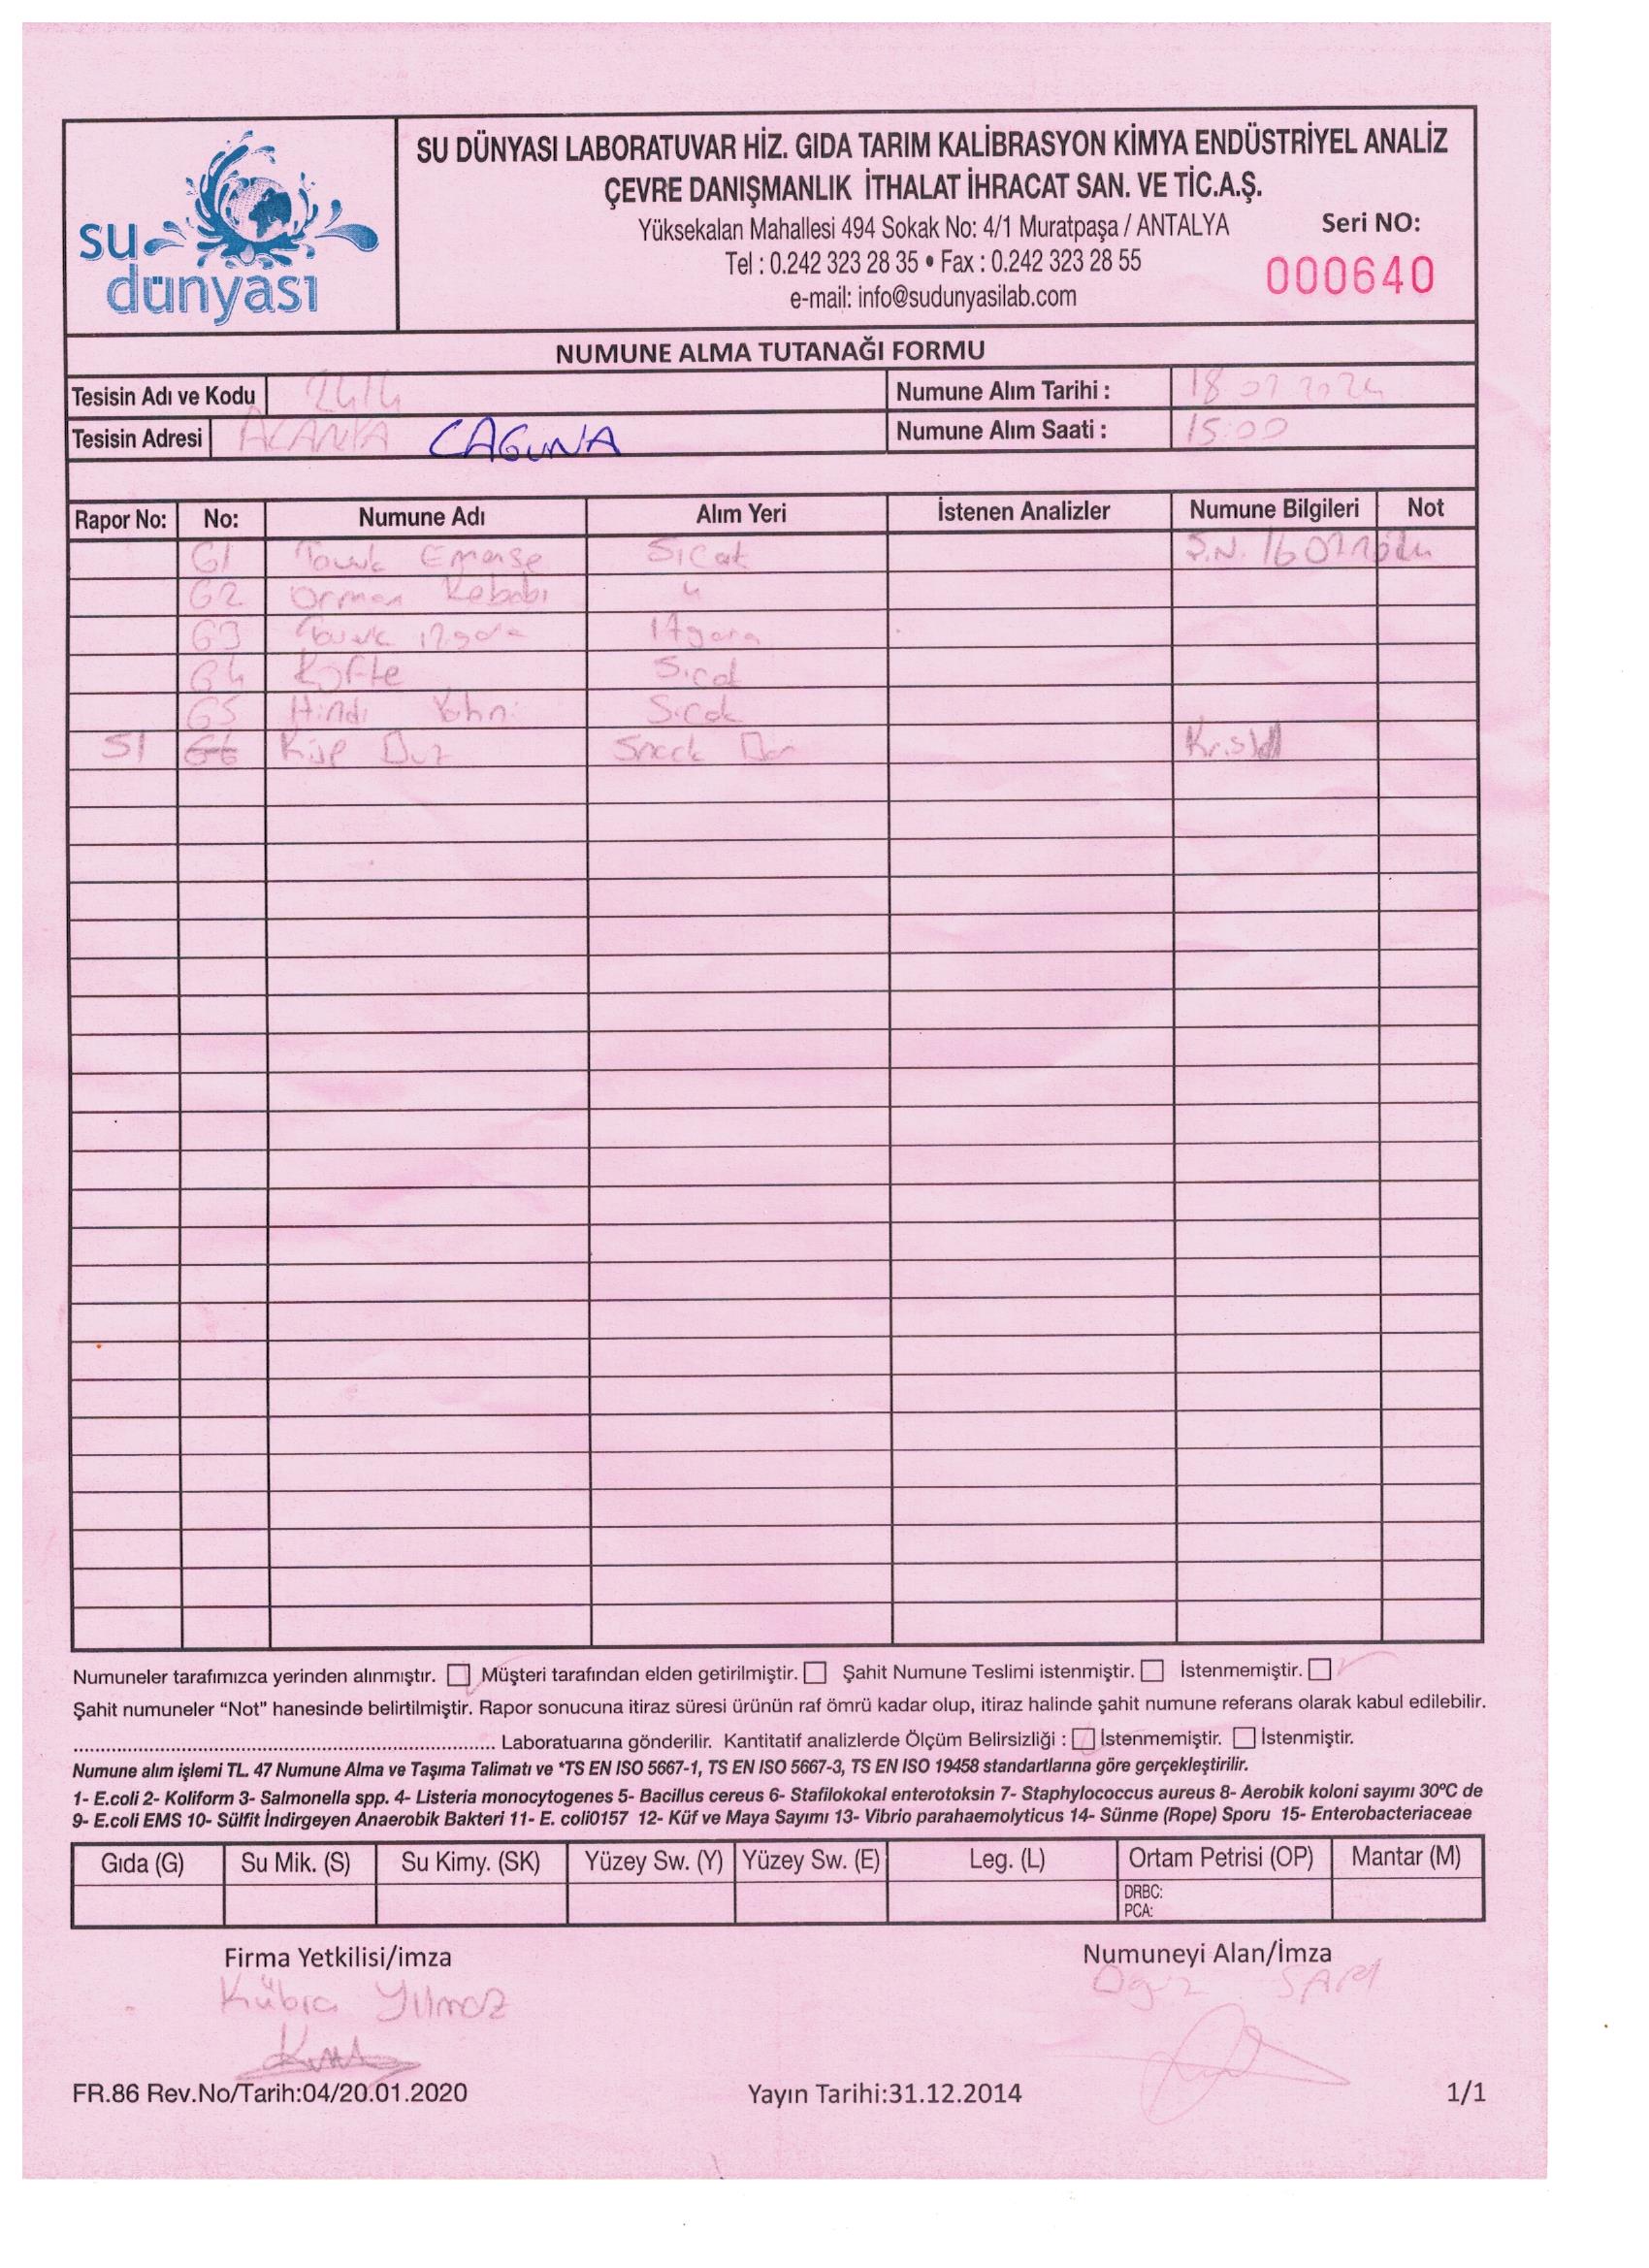 su
dünyası
SU DÜNYASI LABORATUVAR HİZ. GIDA TARIM KALİBRASYON KİMYA ENDÜSTRİYEL ANALİZ
ÇEVRE DANIŞMANLIK İTHALAT İHRACAT SAN. VE TİC.A.Ş.
Yüksekalan Mahallesi 494 Sokak No: 4/1 Muratpaşa / ANTALYA
Tel : 0.242 323 28 35 • Fax : 0.242 323 28 55
e-mail: info@sudunyasilab.com
Seri NO:
000640
NUMUNE ALMA TUTANAĞI FORMU
Tesisin Adı ve Kodu 2414 Numune Alım Tarihi : 18 07 2024
Tesisin Adresi ALANYA CAGUNA Numune Alım Saati : 15:00
Rapor No: No: Numune Adı Alım Yeri İstenen Analizler Numune Bilgileri Not
G1 Tavuk Sıcak Ş.N.
G2 Orman Kebabı "
G3 Tavuk ızgara Izgara
G4 Köfte Sıcak
G5 Hindi Yahni Sıcak
S1 G6 Küp Buz Snack Bar Kristal
Numuneler tarafımızca yerinden alınmıştır. Müşteri tarafından elden getirilmiştir. Şahit Numune Teslimi istenmiştir. İstenmemiştir.
Şahit numuneler “Not” hanesinde belirtilmiştir. Rapor sonucuna itiraz süresi ürünün raf ömrü kadar olup, itiraz halinde şahit numune referans olarak kabul edilebilir.
.............................................................................. Laboratuarına gönderilir. Kantitatif analizlerde Ölçüm Belirsizliği : İstenmemiştir. İstenmiştir.
Numune alım işlemi TL. 47 Numune Alma ve Taşıma Talimatı ve *TS EN ISO 5667-1, TS EN ISO 5667-3, TS EN ISO 19458 standartlarına göre gerçekleştirilir.
1- E.coli 2- Koliform 3- Salmonella spp. 4- Listeria monocytogenes 5- Bacillus cereus 6- Stafilokokal enterotoksin 7- Staphylococcus aureus 8- Aerobik koloni sayımı 30ºC de
9- E.coli EMS 10- Sülfit İndirgeyen Anaerobik Bakteri 11- E. coli0157 12- Küf ve Maya Sayımı 13- Vibrio parahaemolyticus 14- Sünme (Rope) Sporu 15- Enterobacteriaceae
Gıda (G) Su Mik. (S) Su Kimy. (SK) Yüzey Sw. (Y) Yüzey Sw. (E) Leg. (L) Ortam Petrisi (OP) Mantar (M)
DRBC:
PCA:
Firma Yetkilisi/imza Numuneyi Alan/İmza
Kübra Yılmaz Oguz SARI
FR.86 Rev.No/Tarih:04/20.01.2020 Yayın Tarihi:31.12.2014 1/1